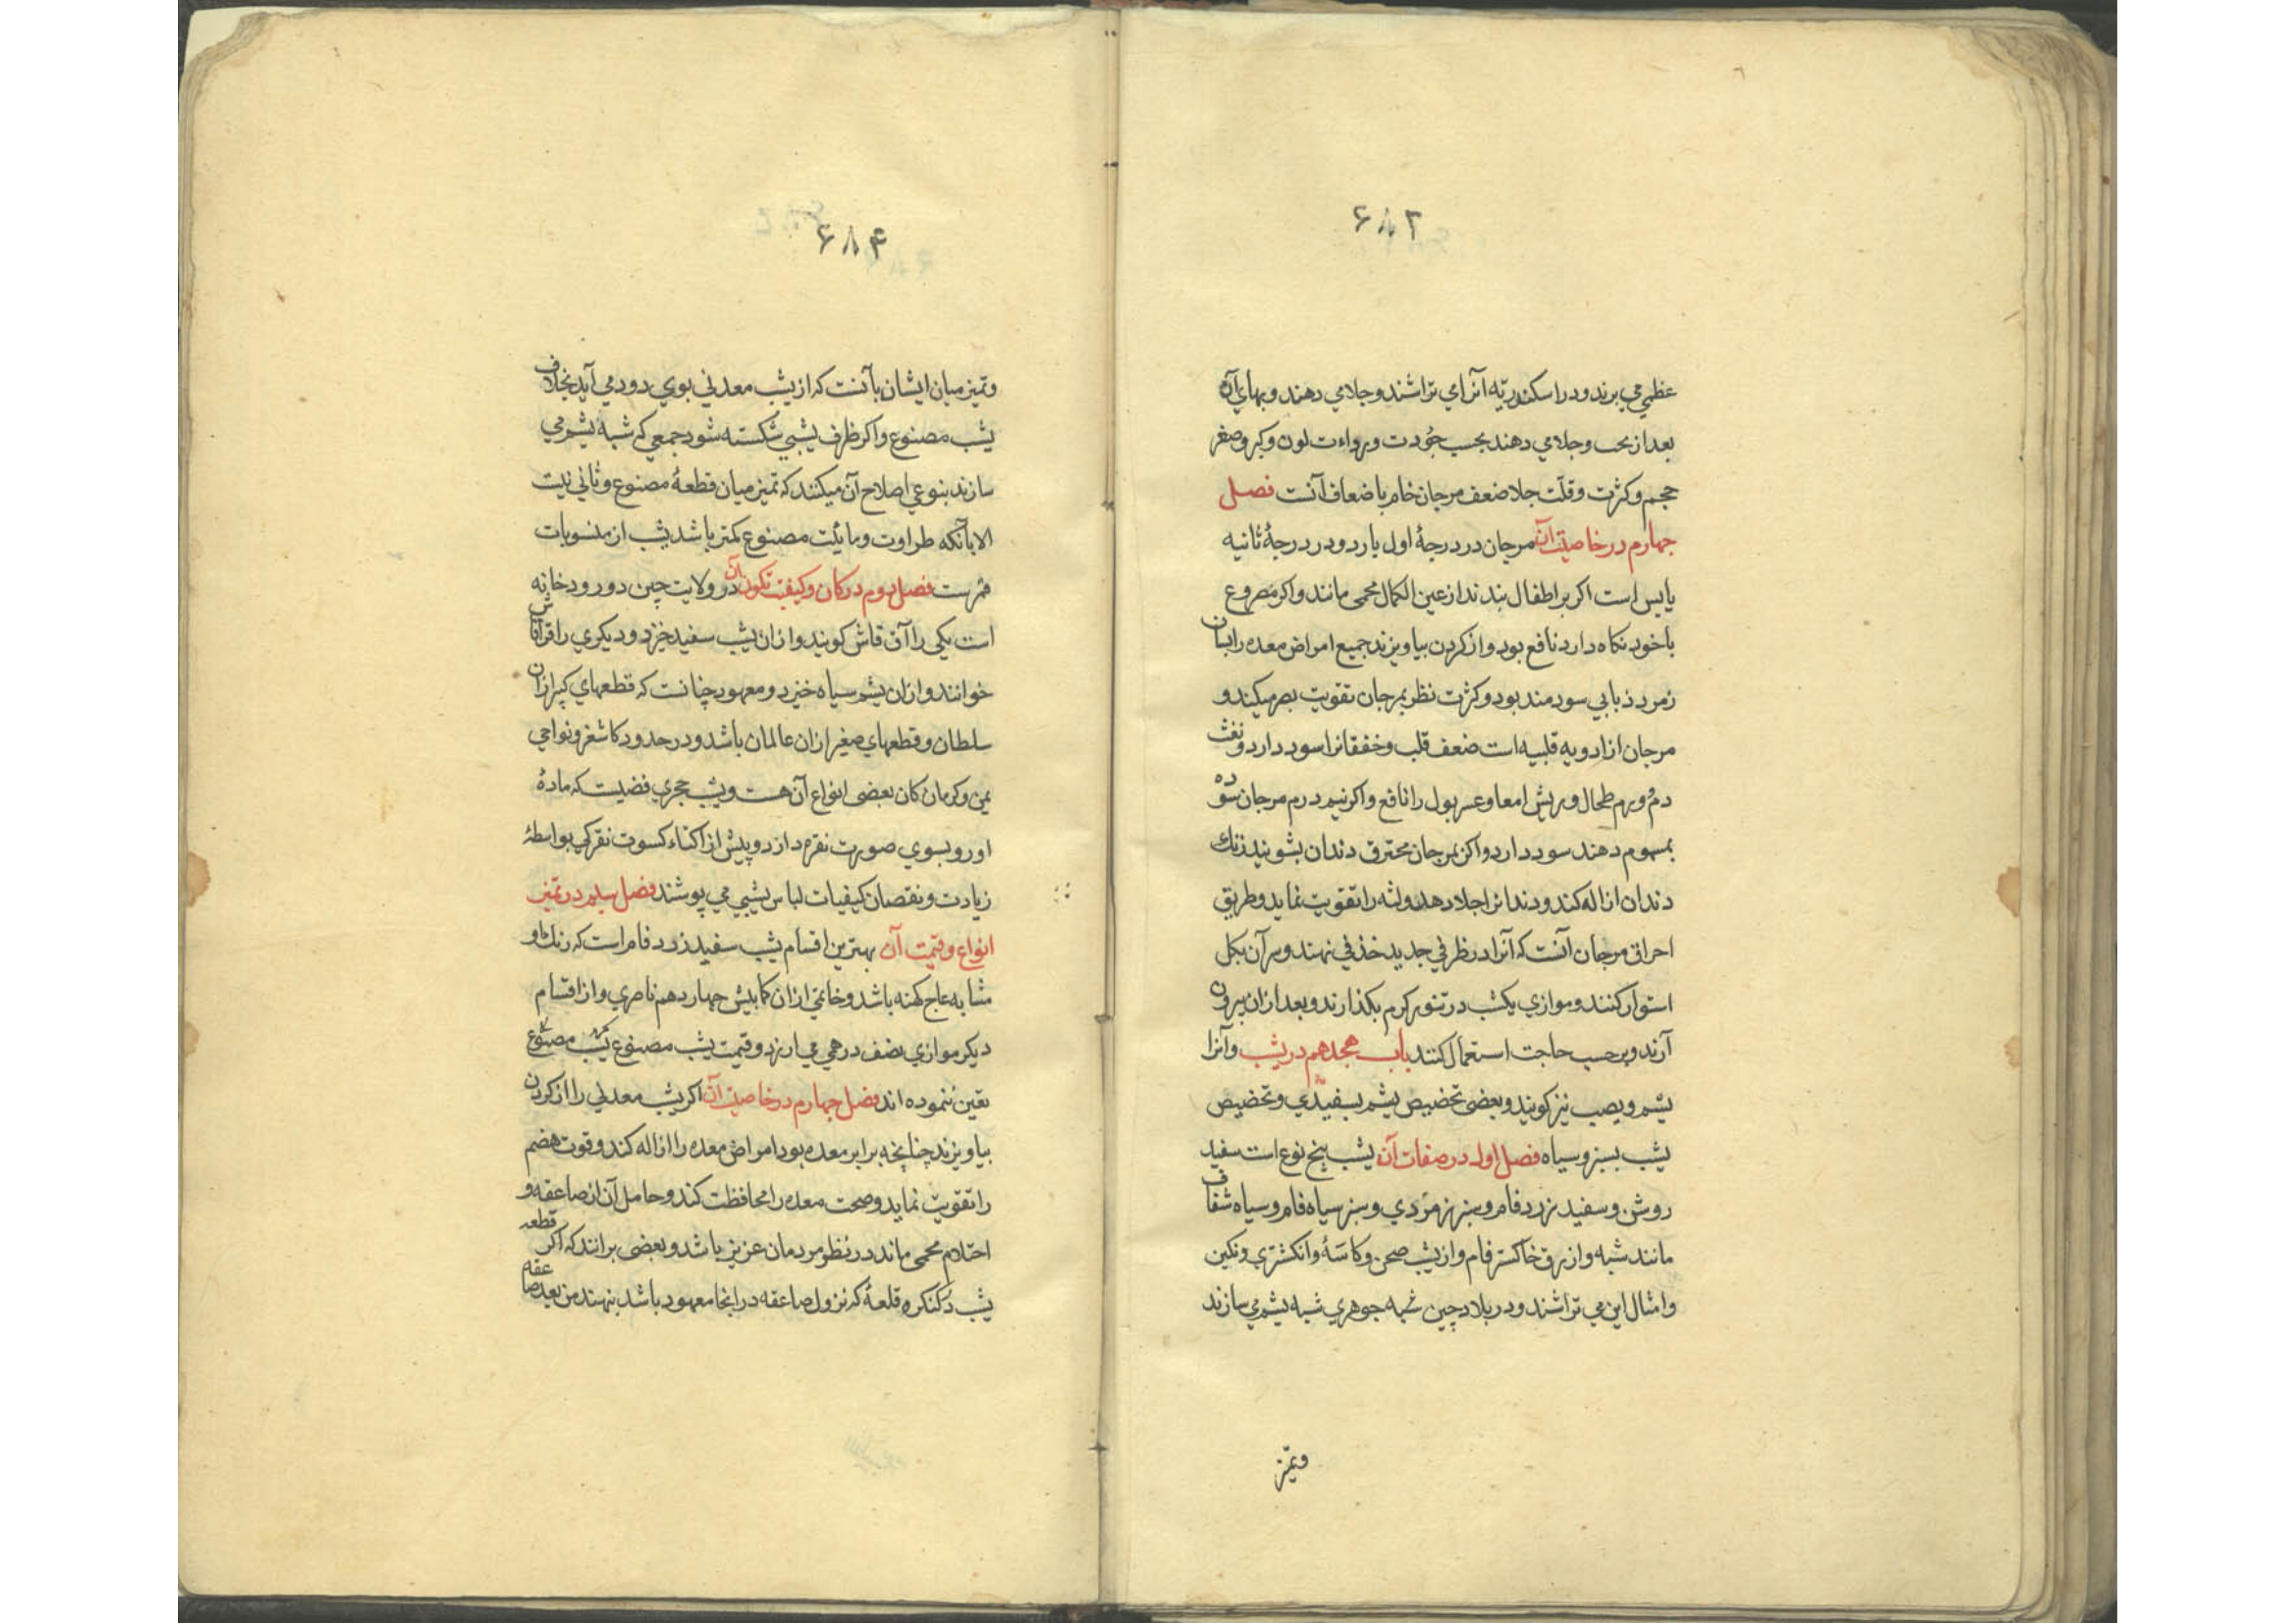 ۶۸۳
عظیمی می برند و در اسکندریّه آنرا می تراشند و جلا می دهند و بهای آن
بعد از نحت و جلا می دهند بحسب جُودت و رداءت لون و کبر و صغر
حجم و کثرت و قلّت جلا ضعف مرجان خام یا ضعاف آنست فصل
چهارم در خاصیّت آن مرجان در درجهٔ اول بارد و در درجهٔ ثانیه
یابس است اکر بر اطفال بندند از عین الکمال محمی مانند و اکر مصروع
با خود نکاه دارد نافع بود و از کردن بیاویزند جمیع امراض معده را بسان
زمرد ذبابی سودمند بود و کثرت نظر بمرجان تقویت بصر میکند و
مرجان از ادویه قلبیه است ضعف قلب و خفقانرا سود دارد و نفث
دم و ورم طحال و ریش امعا و عسر بول را نافع و اکر نیم درم مرجان سوده
بمسموم دهند سود دارد و اکر بمرجان محترق دندان بشویند زنك
دندان ازاله کند و دندانرا جلا دهد و لثه را تقویت نماید و طریق
احراق مرجان آنست که آنرا در ظرفی جدید خذفی نهند و سر آن بکل
استوار کنند و موازی یکشب در تنور کرم بکذارند و بعد از ان بیرون
آرند و برحسب حاجت استعمال کنند باب هجدهم در یشب و آنرا
یشم و یصب نیز کویند و بعضی تخصیص یشم بسفیدی و تخصیص
یشب بسبز و سیاه فصل اول در صفات آن یشب پنج نوع است سفید
روشن و سفید زرد فام و سبز زمردی و سبز سیاه فام و سیاه شفاف
مانند شبه و ازرق خاکستر فام و از یشب صحن و کاسهٔ و انکشتری و نکین
و امثال این می تراشند و در بلاد چین شبه جوهری شبه یشم می سازند
وتمیز
۶۸۴
وتمیز میان ایشان بآنست که از یشب معدنی بوی دود می آید بخلاف
یشب مصنوع و اکر ظرف یشبی شکسته شود جمعی که شبه یشم می
سازند بنوعی اصلاح آن میکنند که تمیز میان قطعهٔ مصنوع و ثانی نیست
الا بآنکه طراوت و مائیّت مصنوع کمتر باشد یشب از منسوبات
قمرست فصل دوم در کان و کیفیت تکون آن در ولایت چین دو رودخانه
است یکی را آق قاش کویند و از ان یشب سفید خیزد و دیکری را قراقاش
خوانند و از ان یشم سیاه خیزد و معهود چنانست که قطعهای کبیر از ان
سلطان و قطعهای صغیر از ان عالمان باشد و در حدود کاشغر و نواحی
یمن و کرمان کان بعضی انواع آن هست و یشب حجری فضیست که مادهٔ
او رو بسوی صورت نقره دارد و پیش از اکتساء کسوت نقرکی بواسطهٔ
زیادت و نقصان کیفیات لباس یشبی می پوشند فصل سیم در تمیز
انواع و قیمت آن بهترین اقسام یشب سفید زرد فام است که رنك او
مشابه عاج کهنه باشد و خاتمی از ان کمابیش چهار دهم ناصری و از اقسام
دیکر موازی نصف درهمی می ارزد و قیمت یشب مصنوع یشب مصنوع
تعین ننموده اند فصل چهارم در خاصیت آن اکر یشب معدنی را از کردن
بیاویزند چنانچه برابر معده بود امراض معده را ازاله کند و قوت هضم
را تقویت نماید و صحت معده را محافظت کند و حامل آن از صاعقه و
احتلام محمی ماند در نظر مردمان عزیز باشد و بعضی برانند که اکر قطعه
یشب در کنکره قلعهٔ که نزول صاعقه در انجا معهود باشد بنهند من بعد صاعقه